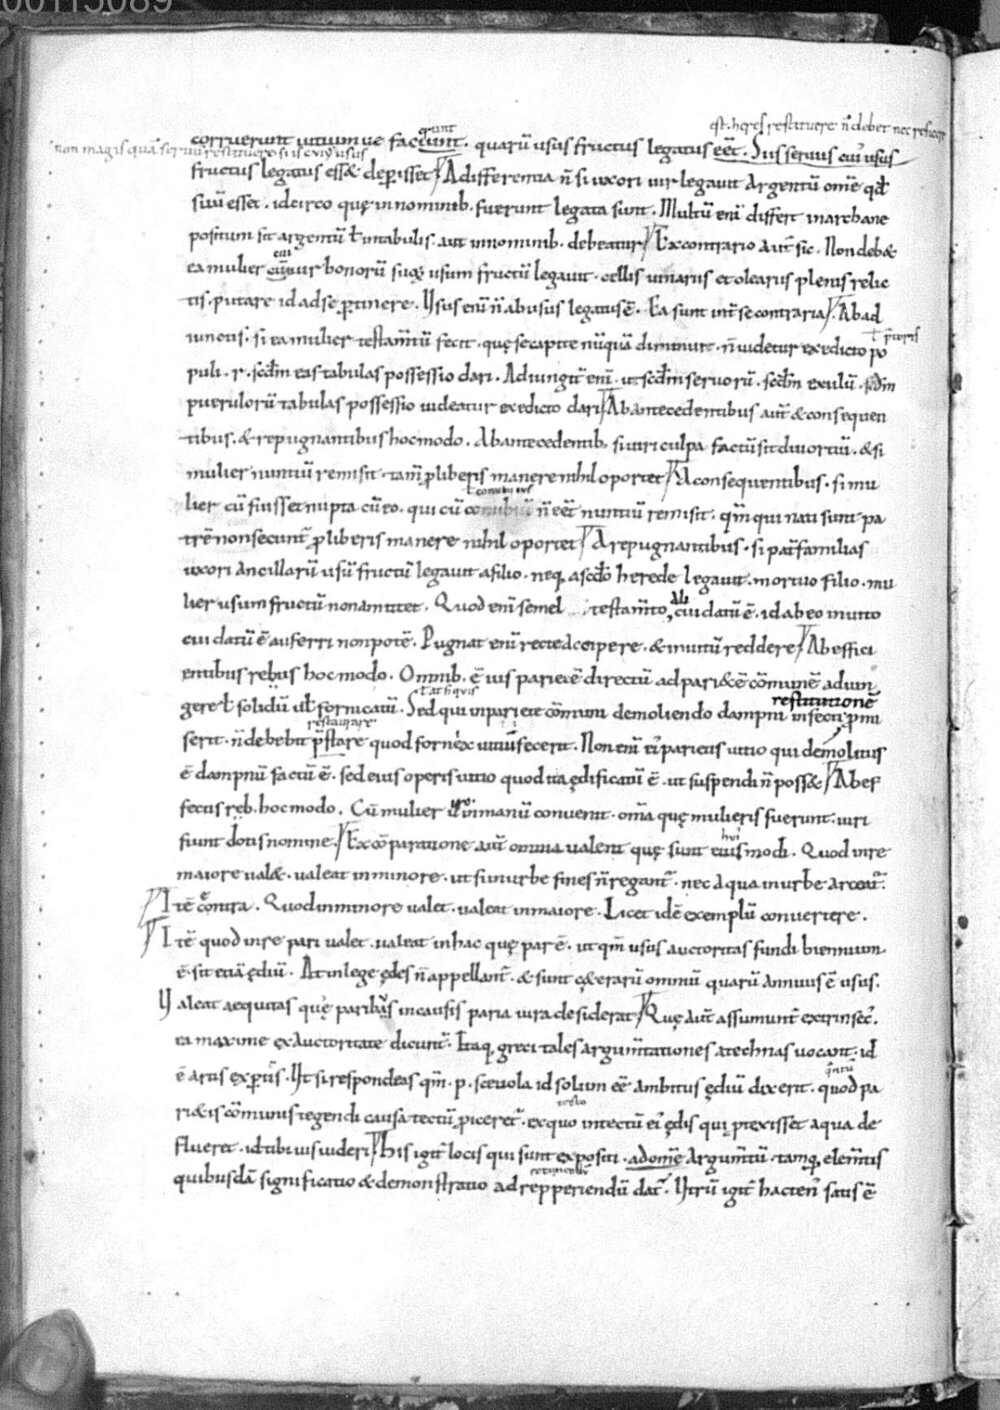 00113089
est. heres restituere n̄ debet nec reficere
non magis quā seruū restituere si is cuius usus
corruerunt uitiumue faciunt. quarū usus fructus legatus eēt. Sus seruus cui' usus
fructus legatus ess& deperisset A differentia n̄ si uxori uir legauit argentū om̄e qđ
suū esset. idcirco quę in nominib. fuerunt legata sunt. Multū enī differt in archane
positum sit argentū ł in tabulis. aut in nominib. debeatur Ex contrario aut̄ sic. Non deb&
cui
ea mulier cui uir bonorū suoꝝ usum fructū legauit. cellis uinariis et oleariis plenis relic
tis. putare id ad se ꝑtinere. Usus enī n̄ abusus legatus ē. Ea sunt int̄ se contraria. Ab ad
ł p̄toris
iunctis. si ea mulier testam̄tū fecit. quę se capite nūquā diminuit. n̄ uidetur ex edicto po
puli. r. scđm eas tabulas possessio dari. Adiungit̄ enī. ut scđm seruorū. scđm exulū. scđm
puerulorū tabulas possessio uideatur ex edicto dari Ab antecedentibus aut̄ & consequen
tibus. & repugnantibus hoc modo. Ab antecedentib. si uiri culpa factū sit diuortiū. & si
mulier nuntiū remisit. tam̄ ꝓ liberis manere nihil oportet A consequentibus. si mu
ł conubium ius
lier cū fuisset nupta cū eo. qui cū conubiū n̄ eēt nuntiū remisit. qm̄ qui nati sunt pa
trē non secunt̄ ꝓ liberis manere nihil oportet A repugnantibus. si pat̄ familias
uxori ancillarū usū fructū legauit a filio. neq. a scđo herede legauit. mortuo filio. mu
ali
lier usum fructū non amittet. Quod enī semel testam̄to, cui datū ē. id ab eo inuito
cui datū ē auferri non potē. Pugnat enī recte accipere. & inuitū reddere Ab effici
entibus rebus hoc modo. Omnib. ē ius pariete directū ad pari&ē cōmunē adiun
ł at si quis
restitutionē
gere ł solidū uł fornicatū. Sed qui in pariete cōmuni demoliendo dampni infecti ꝓmi
restaurare
serit. n̄ debebit p̄stare quod fornix uitiū fecerit. Non enī ei' parietis uitio qui demolitus
ē dampnū factū ē. sed eius operis uitio quod ita ędificatū ē. ut suspendi n̄ poss& Ab ef
fectis reb. hoc modo. Cū mulier uiro in manū conuenit. om̄a quę mulieris fuerunt. uiri
fiunt dotis nomine. Ex cōparatione aut̄ omnia ualent quę sunt eius modi. Quod in re
hui'
maiore ual&. ualeat in minore. ut si in urbe fines n̄ regant̄. nec aqua in urbe arceat̄.
Itē cōntra. Quod in minore ualet. ualeat in maiore. Licet idē exemplū conuertere.
Itē quod in re pari ualet. ualeat in hac quę par ē. ut qm̄ usus auctoritas fundi biennium
ē. sit etiā ędiū. At in lege ędes n̄ appellant̄. & sunt c&erarū omniū quarū annuus ē usus.
Ualeat aequitas quę paribus in causis paria iura desiderat Quę aut̄ assumunt̄ extrinsec'.
ea maxime ex auctoritate dicunt̄. Itaq. greci tales argum̄tationes atechnas uocant. id
ē artis expertis. Ut si respondeas qm̄. p. sceuola id solum eē ambitus ędiū dixerit. quod pa
qntū
ri&is cōmunis tegendi causa tectū ꝓiceret̄. ex quo in tectū ei' ędis qui ꝓtexisset aqua de
tecto
flueret. id tibi ius uideri His igit̄ locis qui sunt expositi. ad om̄e argum̄tū. tamq. elem̄tis
quibusdā significatio & demonstratio ad repperiendū dat̄. Utrū igit̄ hacten' satis ē